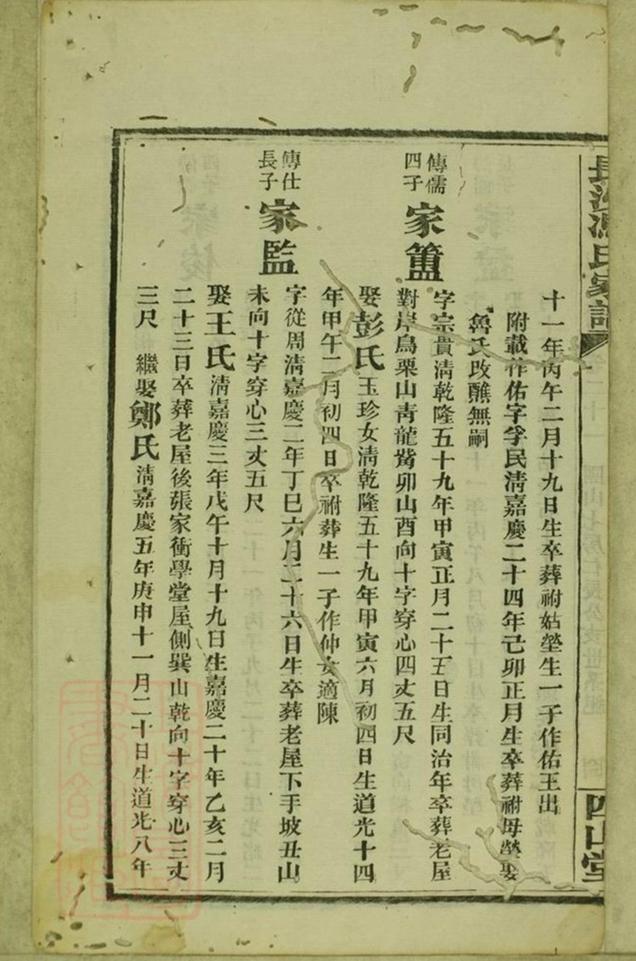 十一年丙午二月十九日生卒葬祔姑塋生一子作佑王出
附載作佑字孚民清嘉慶二十四年己卯正月生卒葬祔母塋娶
魯氏改醮無嗣
傳儒四子 家簠 字宗貴清乾隆五十九年甲寅正月二十五日生同治年卒葬老屋
對岸烏栗山青龍觜卯山酉向十字穿心四丈五尺
娶彭氏玉珍女清乾隆五十九年甲寅六月初四日生道光十四
年甲午二月初四日卒祔葬生一子作仲女適陳
傳仕長子 家監 字從周清嘉慶二年丁巳六月二十六日生卒葬老屋下手坡丑山
未向十字穿心三丈五尺
娶王氏清嘉慶三年戊午十月十九日生嘉慶二十年乙亥二月
二十三日卒葬老屋後張家衝學堂屋側巽山乾向十字穿心三丈
三尺 繼娶鄭氏清嘉慶五年庚申十一月二十日生道光八年